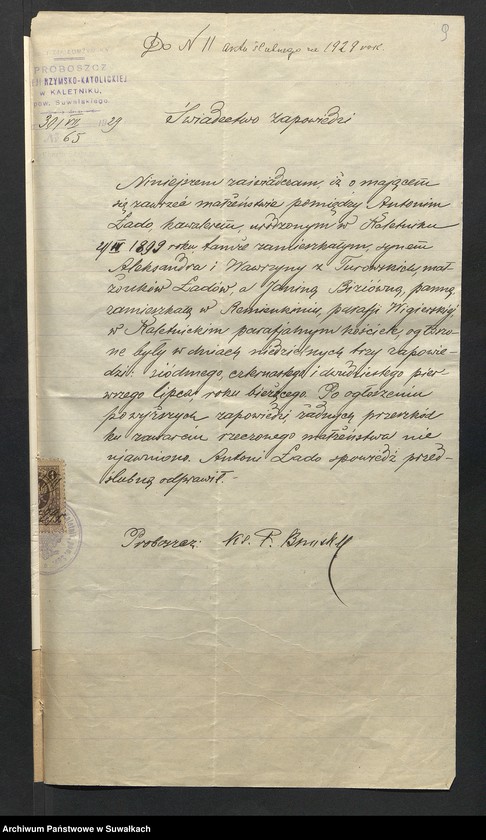 9
Do N 11 aktu ślubnego za 1929 rok.
PROBOSZCZ
RZYMSKO-KATOLICKIEJ
w KALETNIKU,
pow. Suwalskiego.
30/VII 1929
№ 65
Świadectwo zapowiedzi
Niniejszem zaświadczam, iż o mającem
się zawrzeć małżeństwie pomiędzy Antonim
Lado, kawalerem, urodzonym w Kaletniku
1899 roku tamże zamieszkałym, synem
Aleksandra i Wawrzyny z Turowskich, mał-
żonków Ladów, a Janiną Biziówną, panną,
zamieszkałą w Remieńkiniu, parafji Wigierskiej,
w Kaletnickim parafjalnym kościele, ogłoszo-
ne były w dniach niedzielnych trzy zapowie-
dzi: siódmego, czternastego i dwudziestego pier-
wszego lipca, roku bieżącego. Po ogłoszeniu
powyższych zapowiedzi żadnych przeszkód
ku zawarciu rzeczonego małżeństwa nie
ujawniono. Antoni Lado spowiedź przed-
ślubną odprawił. -
Proboszcz: Ks. P.
Archiwum Państwowe w Suwałkach